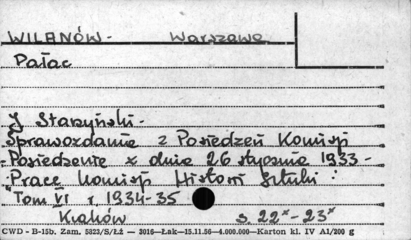 WILANÓW - Warszawa
Pałac
J Starzyński -
Sprawozdanie z Posiedzeń Komisji
- Posiedzenie x dnia 26 stycznia 1933 -
: Prace Komisji Historii Sztuki :
"Tom VI r. 1934-35
Kraków s. 22x - 23x
CWD - B-15b. Zam. 5823/S/Łż — 3016—Łak—15.11.56—4.000.000—Karton kl. IV A1/200 g